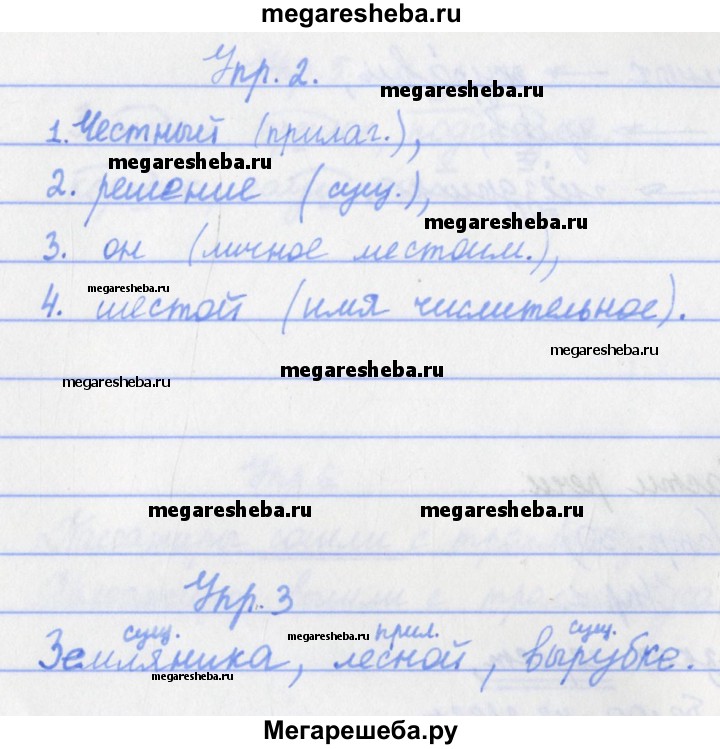 megaresheba.ru
Упр. 2.
megaresheba.ru
1. Честный (прилаг.),
megaresheba.ru
2. решение (сущ.),
megaresheba.ru
3. он (личное местоим.),
megaresheba.ru
4. шестой (имя числительное).
megaresheba.ru
megaresheba.ru
megaresheba.ru
megaresheba.ru
megaresheba.ru
Упр. 3
сущ. прил. сущ.
megaresheba.ru
Земляника, лесной, вырубке.
megaresheba.ru
Мегарешеба.ру